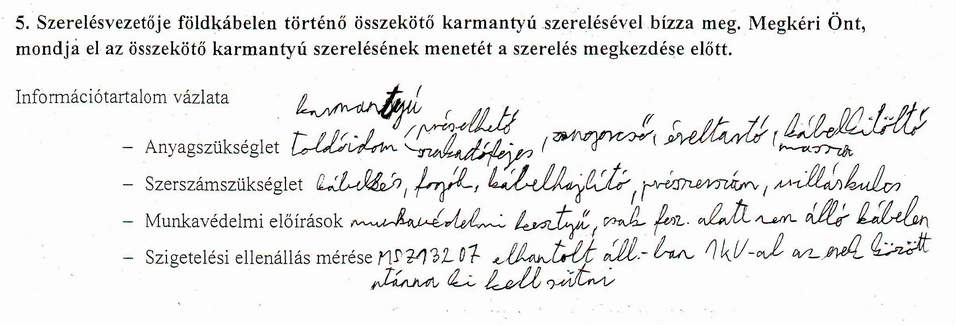 5. Szerelésvezetője földkábelen történő összekötő karmantyú szerelésével bízza meg. Megkéri Önt,
mondja el az összekötő karmantyú szerelésének menetét a szerelés megkezdése előtt.
Információtartalom vázlata
karmantyú
préselhető
– Anyagszükséglet toldóidom szakadófejes, zsugorcső, éreltartó, kábelkitöltő
massza
– Szerszámszükséglet kábelkés, fogók, kábelhajlító, présszerszám, villáskulcs
– Munkavédelmi előírások munkavédelmi kesztyű, csak fesz. alatt nem álló kábelen
– Szigetelési ellenállás mérése MSZ13207 elhantolt áll.-ban 1kV-al az erek között
utánna ki kell sütni